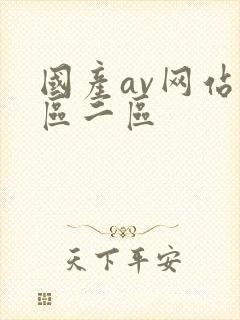 國產av网佔
區二區
天下平安